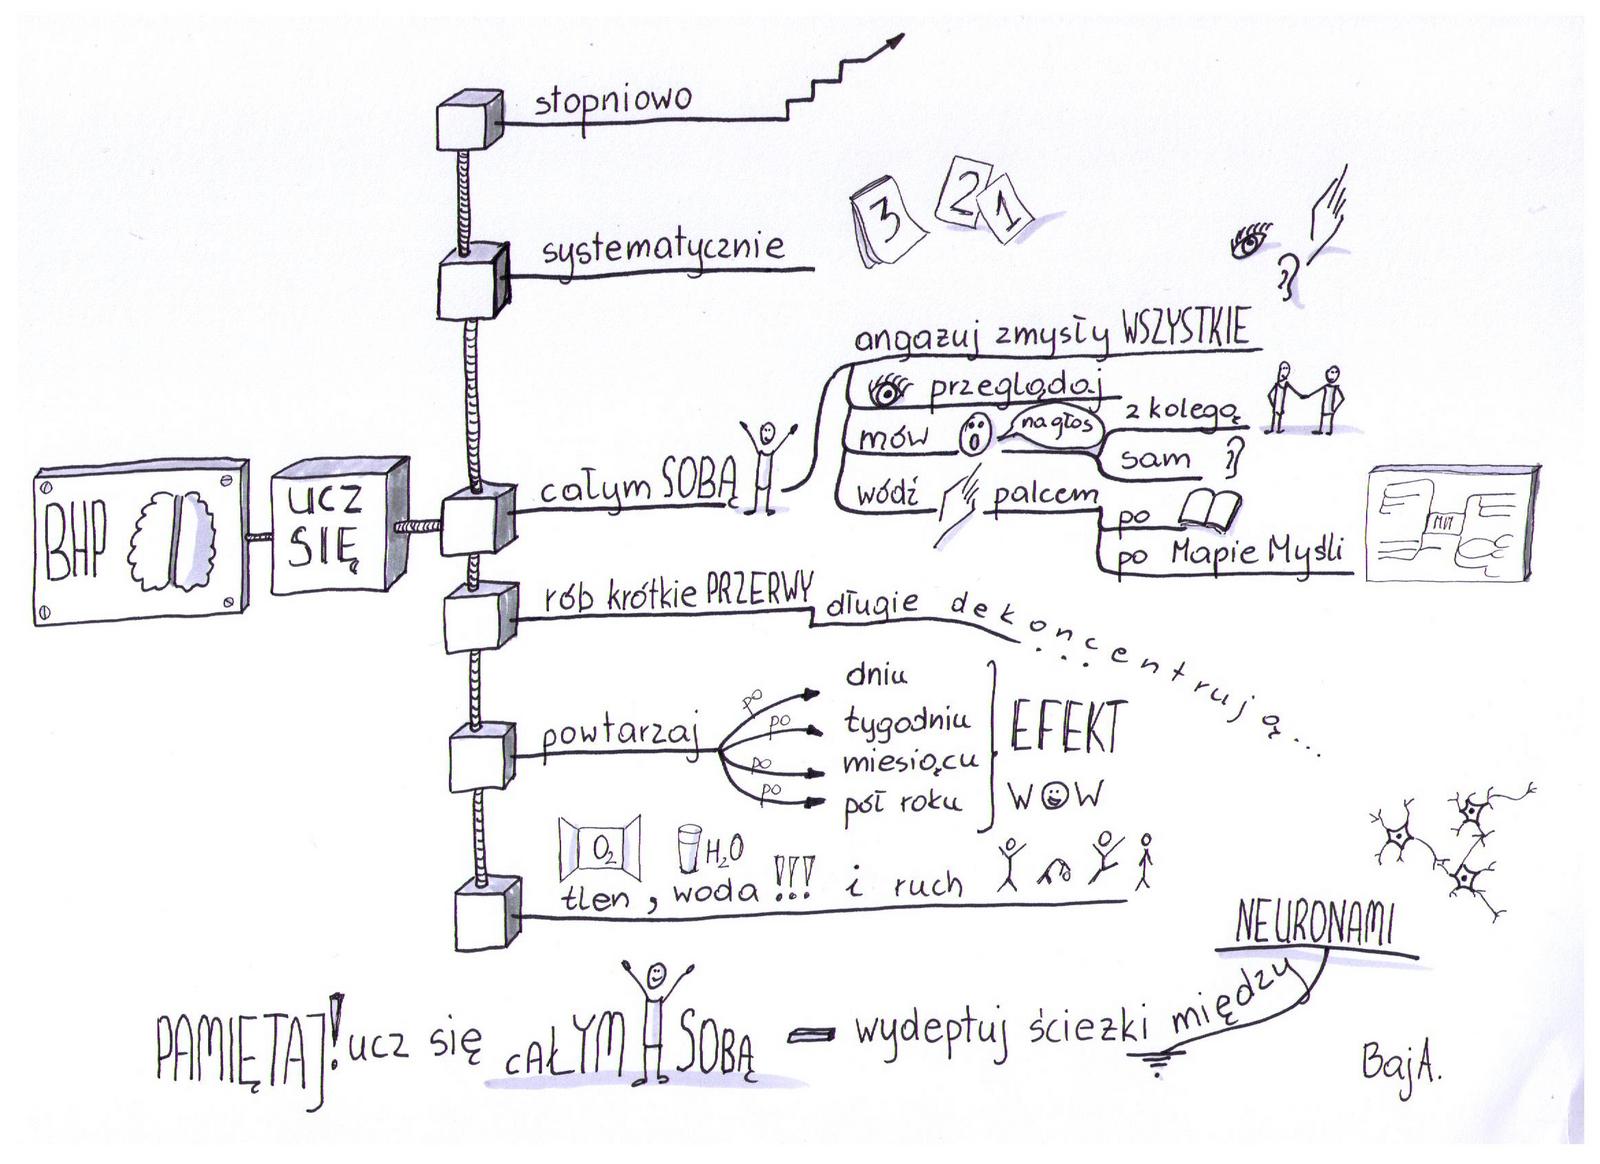 stopniowo
3 2 1
systematycznie
angażuj zmysły WSZYSTKIE
przeglądaj
mów
na głos
z kolegą
sam
całym SOBĄ
wódź palcem
po
po Mapie Myśli
MM
BHP
UCZ
SIĘ
rób krótkie PRZERWY
długie dekoncentrują...
powtarzaj
po dniu
po tygodniu
po miesiącu
po pół roku
EFEKT
WOW
O2
H2O
tlen, woda !!! i ruch
NEURONAMI
PAMIĘTAJ! ucz się CAŁYM SOBĄ – wydeptuj ścieżki między
BajA.